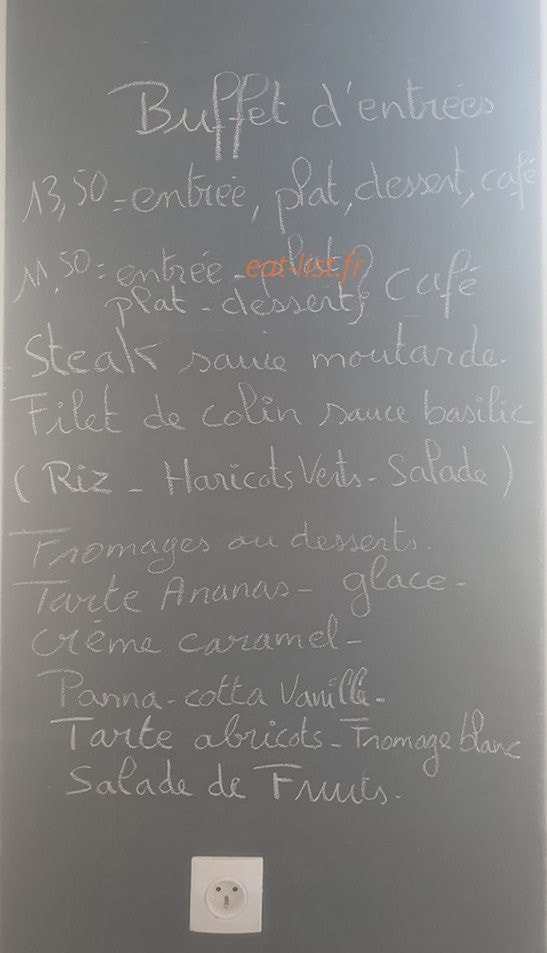 Buffet d'entrées
13,50 = entrée, plat, dessert, café
11,50 = entrée - plat } café
eat-list.fr
plat - dessert
Steak sauce moutarde.
Filet de colin sauce basilic
( Riz - Haricots Verts - Salade )
Fromages ou desserts.
Tarte Ananas - glace -
Crème caramel -
Panna-cotta Vanille -
Tarte abricots - Fromage blanc
Salade de Fruits.